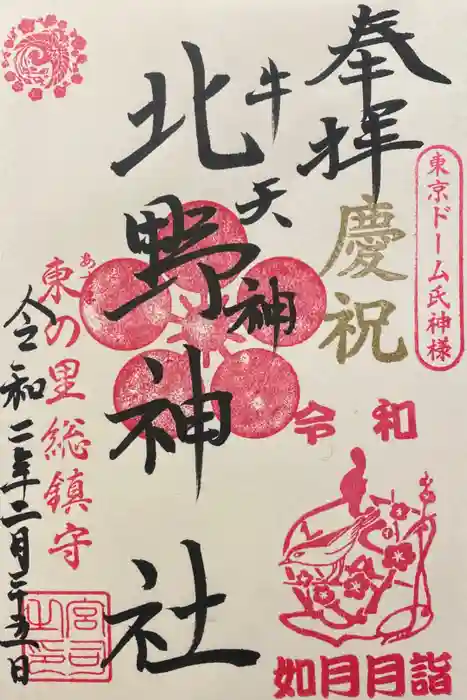 奉拝
慶祝
東京ドーム氏神様
令和
如月月詣
牛天神
北野神社
あづま
東の里総鎮守
令和二年二月二十五日
宮司之印